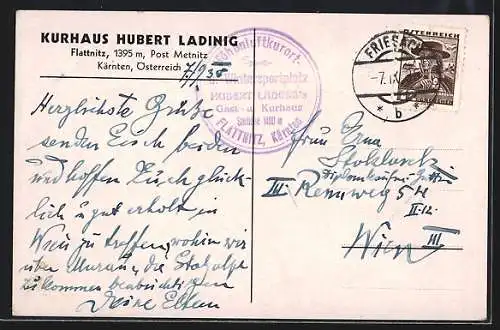 KURHAUS HUBERT LADINIG
Flattnitz, 1395 m, Post Metnitz
Kärnten, Österreich 7/9 35
Höhenluftkurort
u. Wintersportplatz
HUBERT LADINIG's
Gast- u. Kurhaus
FLATTNITZ, Kärnten
FRIESACH
-7.IX
* b *
ÖSTERREICH
Herzlichste Grüße
senden Euch beiden
und hoffen Euch glück-
lich u gut erholt in
Wien zu treffen, wohin wir
über Murau, die Stolzalpe
zu kommen beabsichtigen
Deine Eltern
Frau Erna
Diplomkaufm. Gattin
III. Rennweg
II-12.
Wien III